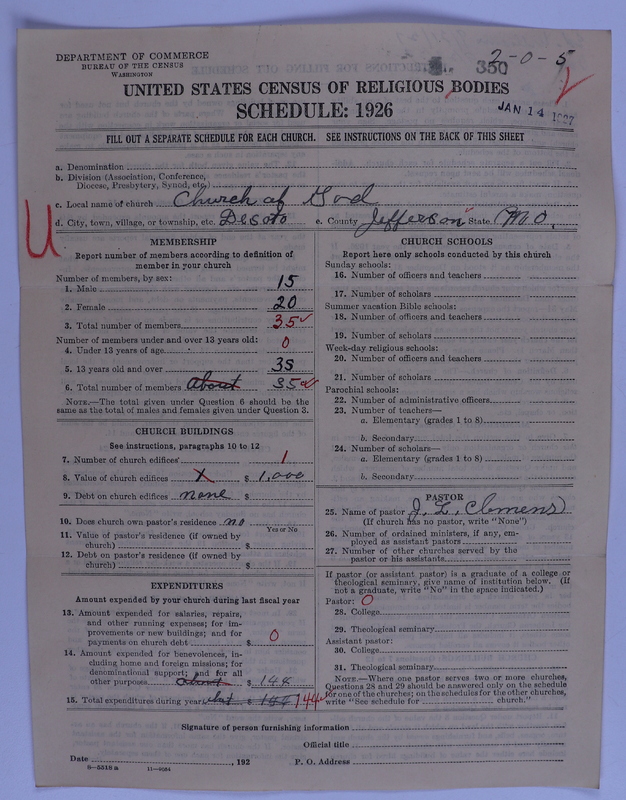 DEPARTMENT OF COMMERCE
BUREAU OF THE CENSUS
WASHINGTON
2-0-5
350
UNITED STATES CENSUS OF RELIGIOUS BODIES
SCHEDULE: 1926
JAN 14 1927
FILL OUT A SEPARATE SCHEDULE FOR EACH CHURCH. SEE INSTRUCTIONS ON THE BACK OF THIS SHEET
a. Denomination
b. Division (Association, Conference,
Diocese, Presbytery, Synod, etc.)
c. Local name of church Church of God
d. City, town, village, or township, etc. Desoto e. County Jefferson State Mo.
U
MEMBERSHIP
Report number of members according to definition of
member in your church
Number of members, by sex:
1. Male 15
2. Female 20
3. Total number of members 35
Number of members under and over 13 years old:
4. Under 13 years of age 0
5. 13 years old and over 35
6. Total number of members about 35
NOTE.—The total given under Question 6 should be the
same as the total of males and females given under Question 3.
CHURCH BUILDINGS
See instructions, paragraphs 10 to 12
7. Number of church edifices 1
8. Value of church edifices X $ 1,000
9. Debt on church edifices none $
10. Does church own pastor's residence no
Yes or No
11. Value of pastor's residence (if owned by
church) $
12. Debt on pastor's residence (if owned by
church) $
EXPENDITURES
Amount expended by your church during last fiscal year
13. Amount expended for salaries, repairs,
and other running expenses; for im-
provements or new buildings; and for
payments on church debt $ 0
14. Amount expended for benevolences, in-
cluding home and foreign missions; for
denominational support; and for all
other purposes about $ 144
15. Total expenditures during year $ 144 144
CHURCH SCHOOLS
Report here only schools conducted by this church
Sunday schools:
16. Number of officers and teachers
17. Number of scholars
Summer vacation Bible schools:
18. Number of officers and teachers
19. Number of scholars
Week-day religious schools:
20. Number of officers and teachers
21. Number of scholars
Parochial schools:
22. Number of administrative officers
23. Number of teachers—
a. Elementary (grades 1 to 8)
b. Secondary
24. Number of scholars—
a. Elementary (grades 1 to 8)
b. Secondary
PASTOR
25. Name of pastor J. L. Clemens
(If church has no pastor, write "None")
26. Number of ordained ministers, if any, em-
ployed as assistant pastors
27. Number of other churches served by the
pastor or his assistants
If pastor (or assistant pastor) is a graduate of a college or
theological seminary, give name of institution below. (If
not a graduate, write "No" in the space indicated.)
Pastor: 0
28. College
29. Theological seminary
Assistant pastor:
30. College
31. Theological seminary
NOTE.—Where one pastor serves two or more churches,
Questions 28 and 29 should be answered only on the schedule
for one of the churches; on the schedules for the other churches,
write "See schedule for church."
Signature of person furnishing information
Official title
Date , 192 P. O. Address
8—5518 a 11—9084